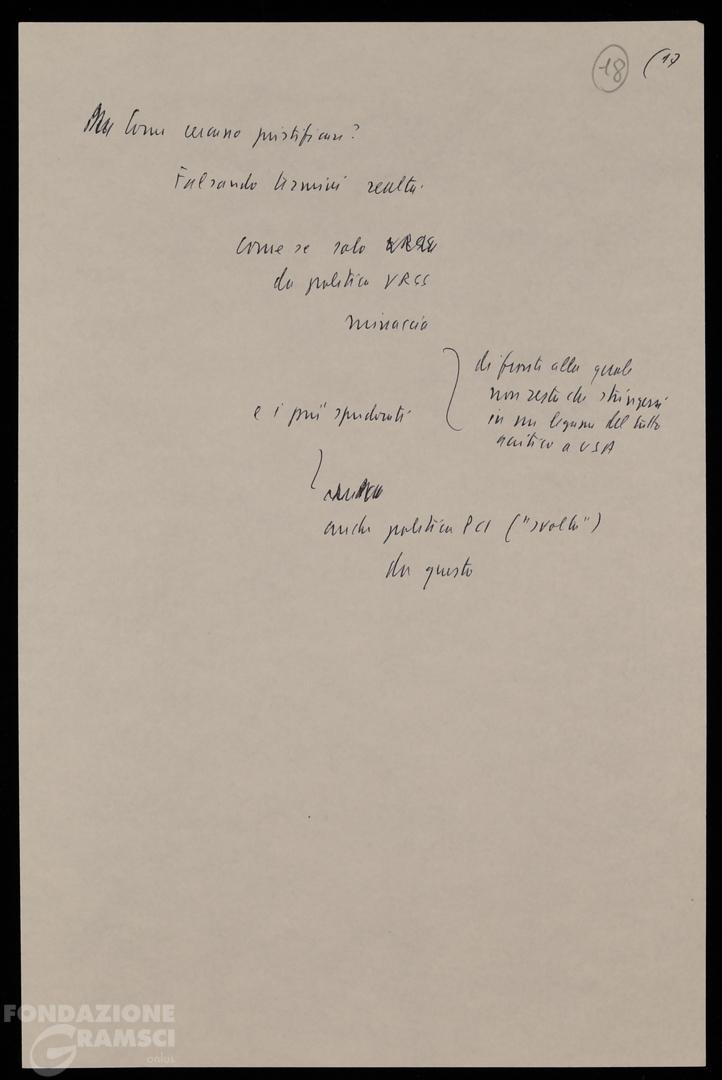 18 (17
Ma Come cercano giustificare?
Falsando termini realtà.
Come se solo
da politica URSS
minaccia
di fronte alla quale
non resta che stringersi
in un legame del tutto
acritico a USA
e i più spudorati
anche politica PCI ("svolta")
da questo
FONDAZIONE
GRAMSCI
onlus